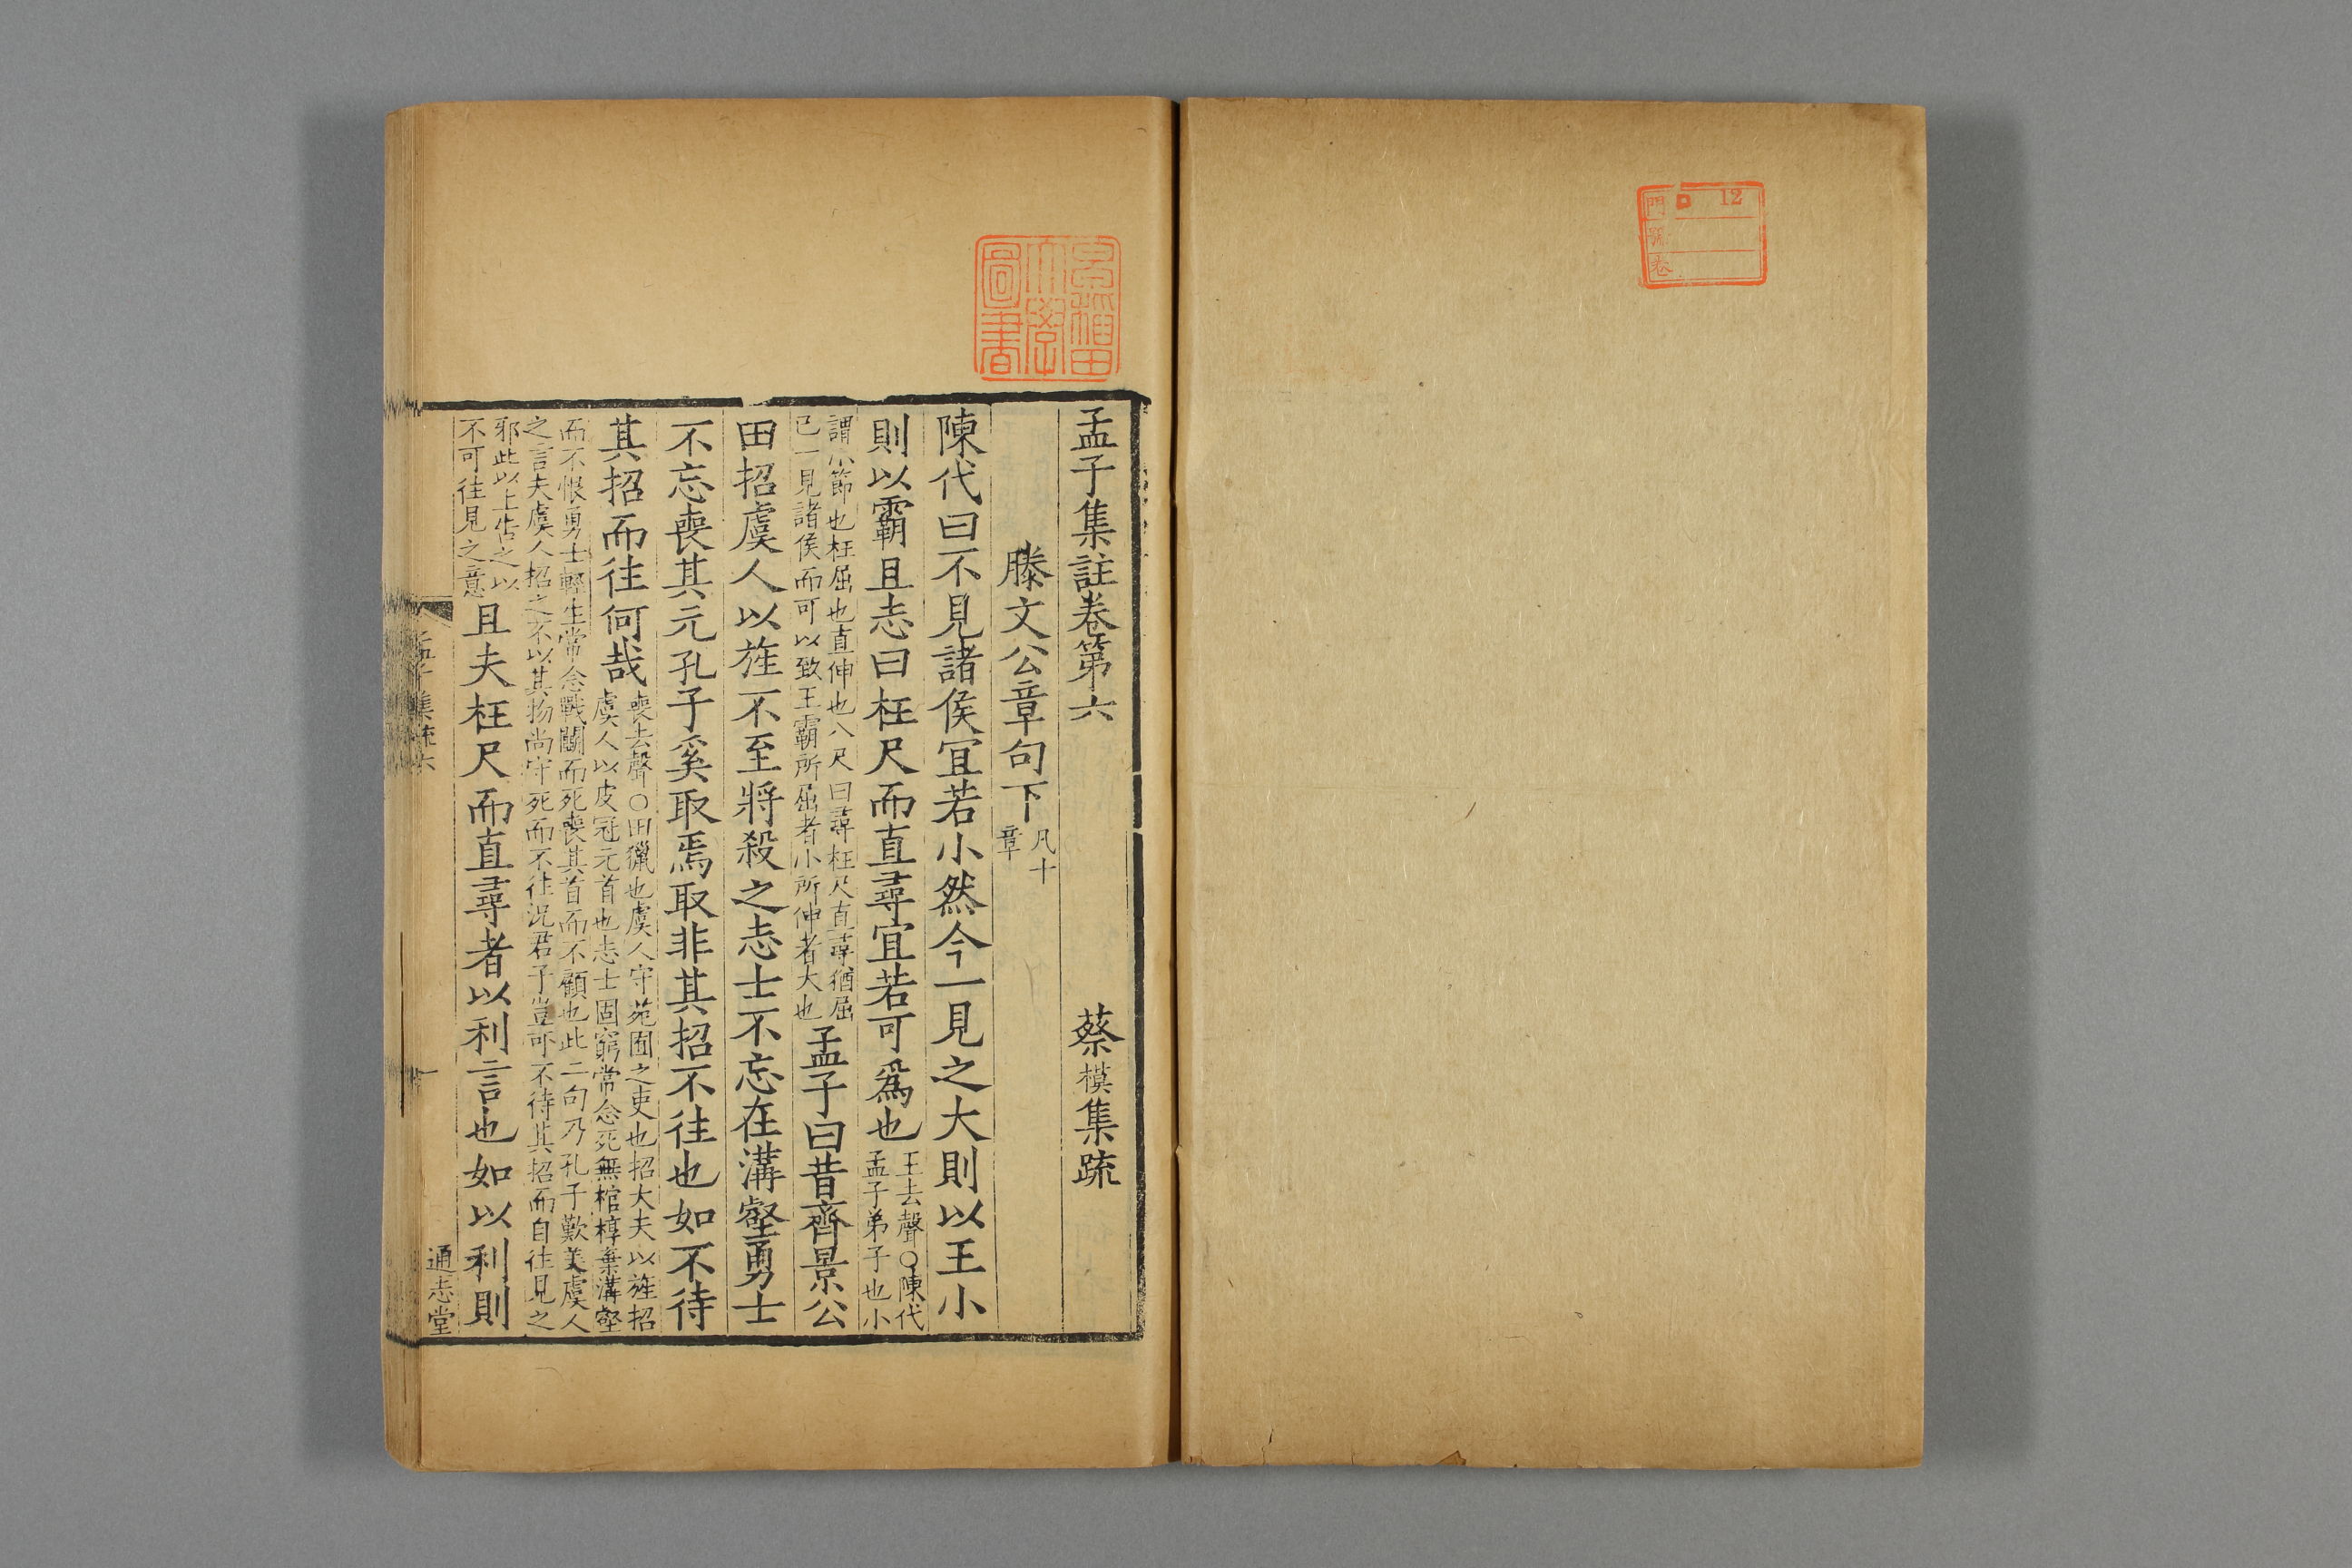 門 ロ 12
號
卷
早稲田
大學
圖書
孟子集註卷第六 蔡模集疏
滕文公章句下 凡十
章
陳代曰不見諸侯宜若小然今一見之大則以王小
則以霸且志曰枉尺而直尋宜若可爲也 王去聲○陳代
孟子弟子也小
謂小節也枉屈也直伸也八尺曰尋枉尺直尋猶屈
己一見諸侯而可以致王霸所屈者小所伸者大也 孟子曰昔齊景公
田招虞人以旌不至將殺之志士不忘在溝壑勇士
不忘喪其元孔子奚取焉取非其招不往也如不待
其招而往何哉 喪去聲○田獵也虞人守苑囿之吏也招大夫以旌招
虞人以皮冠元首也志士固窮常念死無棺椁棄溝壑
而不恨勇士輕生常念戰鬭而死喪其首而不顧也此二句乃孔子歎美虞人
之言夫虞人招之不以其物尚守死而不往況君子豈可不待其招而自往見之
邪此以上告之以
不可往見之意 且夫枉尺而直尋者以利言也如以利則
孟子集疏六 一 通志堂